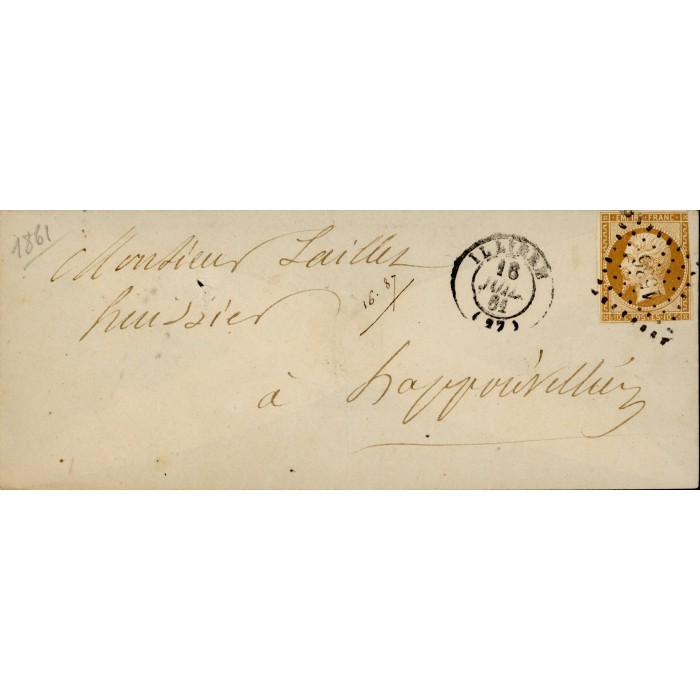 1861
Monsieur Laillet
huissier
à happonvilliers
16. 87
ILLIERS
18
JUIL.
61
(27)
EMPIRE FRANC
1535